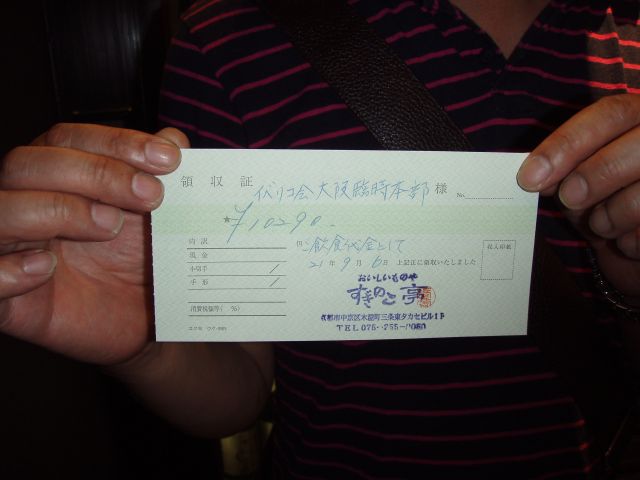 領収証 代リコ会大阪臨時本部 様 No.
★ ¥10290.
但 ご飲食代金として
21年9月6日 上記正に領収いたしました
内訳
現金
小切手 /
手形 /
消費税額等( %)
収入印紙
おいしいものや
すぎのこ亭
京都市中京区木屋町三条東タカセビル1F
TEL 075-255-
コクヨ ウケ-